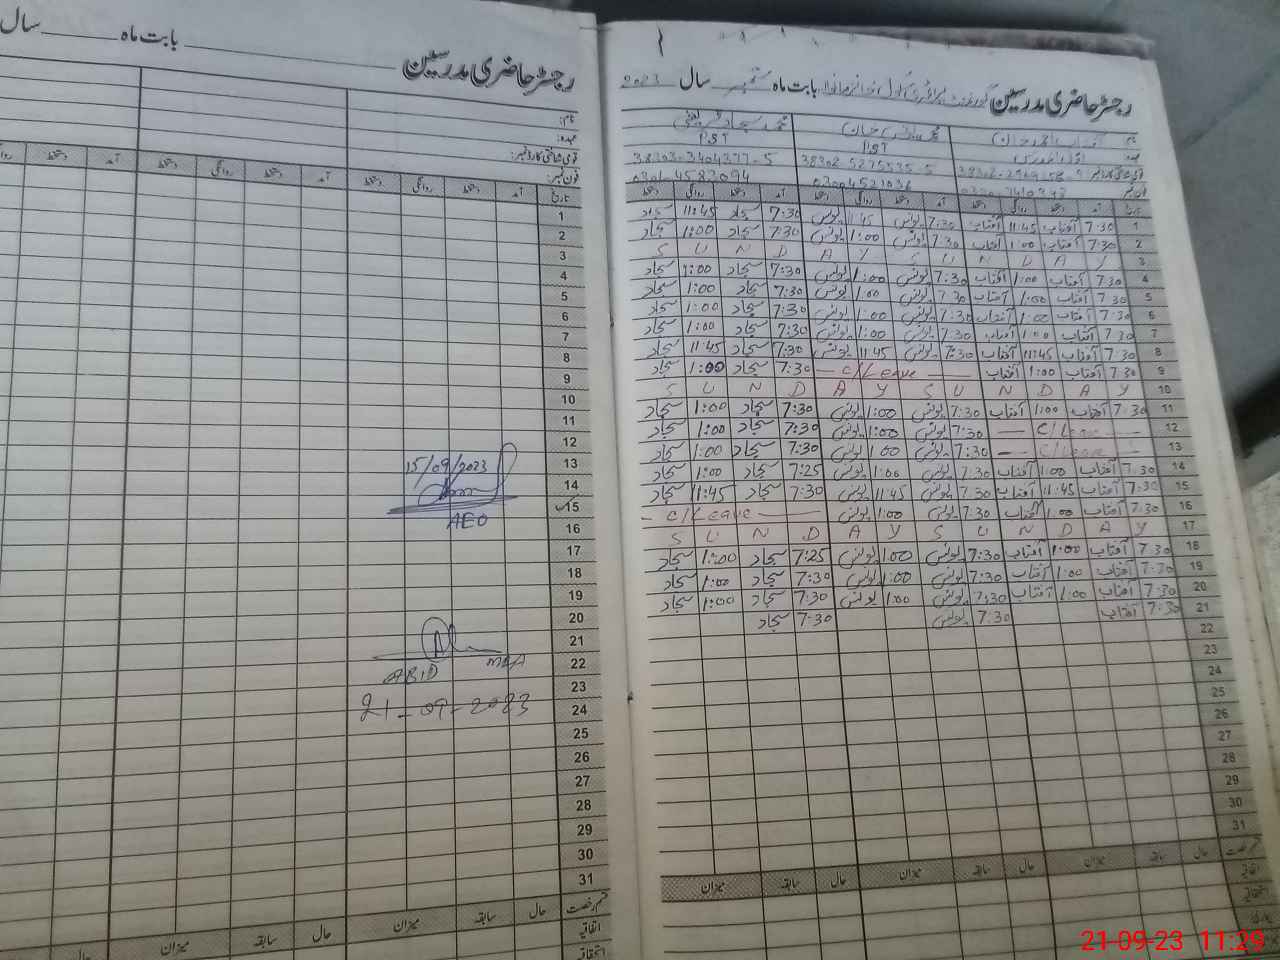 رجسٹر حاضری مدرسین گورنمنٹ پرائمری سکول بابت ماہ ستمبر سال 2023
نام آفتاب احمد خان محمد یونس خان محمد سجاد قریشی
عہدہ PST PST
38302-5275535-5 38303-3404377-5
03004521036 0301-4583094
تاریخ آمد دستخط روانگی دستخط آمد دستخط روانگی دستخط آمد دستخط روانگی دستخط
1 7:30 آفتاب 11:45 آفتاب 7:30 یونس 11:45 یونس 7:30 سجاد 11:45 سجاد
2 7:30 آفتاب 1:00 آفتاب 7:30 یونس 1:00 یونس 7:30 سجاد 1:00 سجاد
3 S U N D A Y S U N D A Y
4 7:30 آفتاب 1:00 آفتاب 7:30 یونس 1:00 یونس 7:30 سجاد 1:00 سجاد
5 7:30 آفتاب 1:00 آفتاب 7:30 یونس 1:00 یونس 7:30 سجاد 1:00 سجاد
6 7:30 آفتاب 1:00 آفتاب 7:30 یونس 1:00 یونس 7:30 سجاد 1:00 سجاد
7 7:30 آفتاب 1:00 آفتاب 7:30 یونس 1:00 یونس 7:30 سجاد 1:00 سجاد
8 7:30 آفتاب 11:45 آفتاب 7:30 یونس 11:45 یونس 7:30 سجاد 11:45 سجاد
9 7:30 آفتاب 1:00 آفتاب — C/Leave — 7:30 سجاد 1:00 سجاد
10 S U N D A Y S U N D A Y
11 7:30 آفتاب 1:00 آفتاب 7:30 یونس 1:00 یونس 7:30 سجاد 1:00 سجاد
12 — C/Leave — 7:30 یونس 1:00 یونس 7:30 سجاد 1:00 سجاد
13 — C/Leave — 7:30 یونس 1:00 یونس 7:30 سجاد 1:00 سجاد
14 7:30 آفتاب 1:00 آفتاب 7:30 یونس 1:00 یونس 7:25 سجاد 1:00 سجاد
15 7:30 آفتاب 11:45 آفتاب 7:30 یونس 11:45 یونس 7:30 سجاد 11:45 سجاد
16 7:30 آفتاب 1:00 آفتاب 7:30 یونس 1:00 یونس — C/Leave —
17 S U N D A Y S U N D A Y
18 7:30 آفتاب 1:00 آفتاب 7:30 یونس 1:00 یونس 7:25 سجاد 1:00 سجاد
19 7:30 آفتاب 1:00 آفتاب 7:30 یونس 1:00 یونس 7:30 سجاد 1:00 سجاد
20 7:30 آفتاب 1:00 آفتاب 7:30 یونس 1:00 یونس 7:30 سجاد 1:00 سجاد
21 7:30 آفتاب 7:30 یونس 7:30 سجاد
22
23
24
25
26
27
28
29
30
31
قسم رخصت حال سابقہ میزان حال سابقہ میزان حال سابقہ میزان
اتفاقیہ
استحقاقیہ
رجسٹر حاضری مدرسین بابت ماہ سال
نام:
عہدہ:
قومی شناختی کارڈ نمبر:
فون نمبر:
تاریخ آمد دستخط روانگی دستخط آمد دستخط روانگی دستخط آمد دستخط
1
2
3
4
5
6
7
8
9
10
11
12
13 15/09/2023
14
15
16 AEO
17
18
19
20
21
22 ABID MEA
23
24 21-09-2023
25
26
27
28
29
30
31
قسم رخصت حال سابقہ میزان حال سابقہ میزان حال
اتفاقیہ
استحقاقیہ
21-09-23 11:29